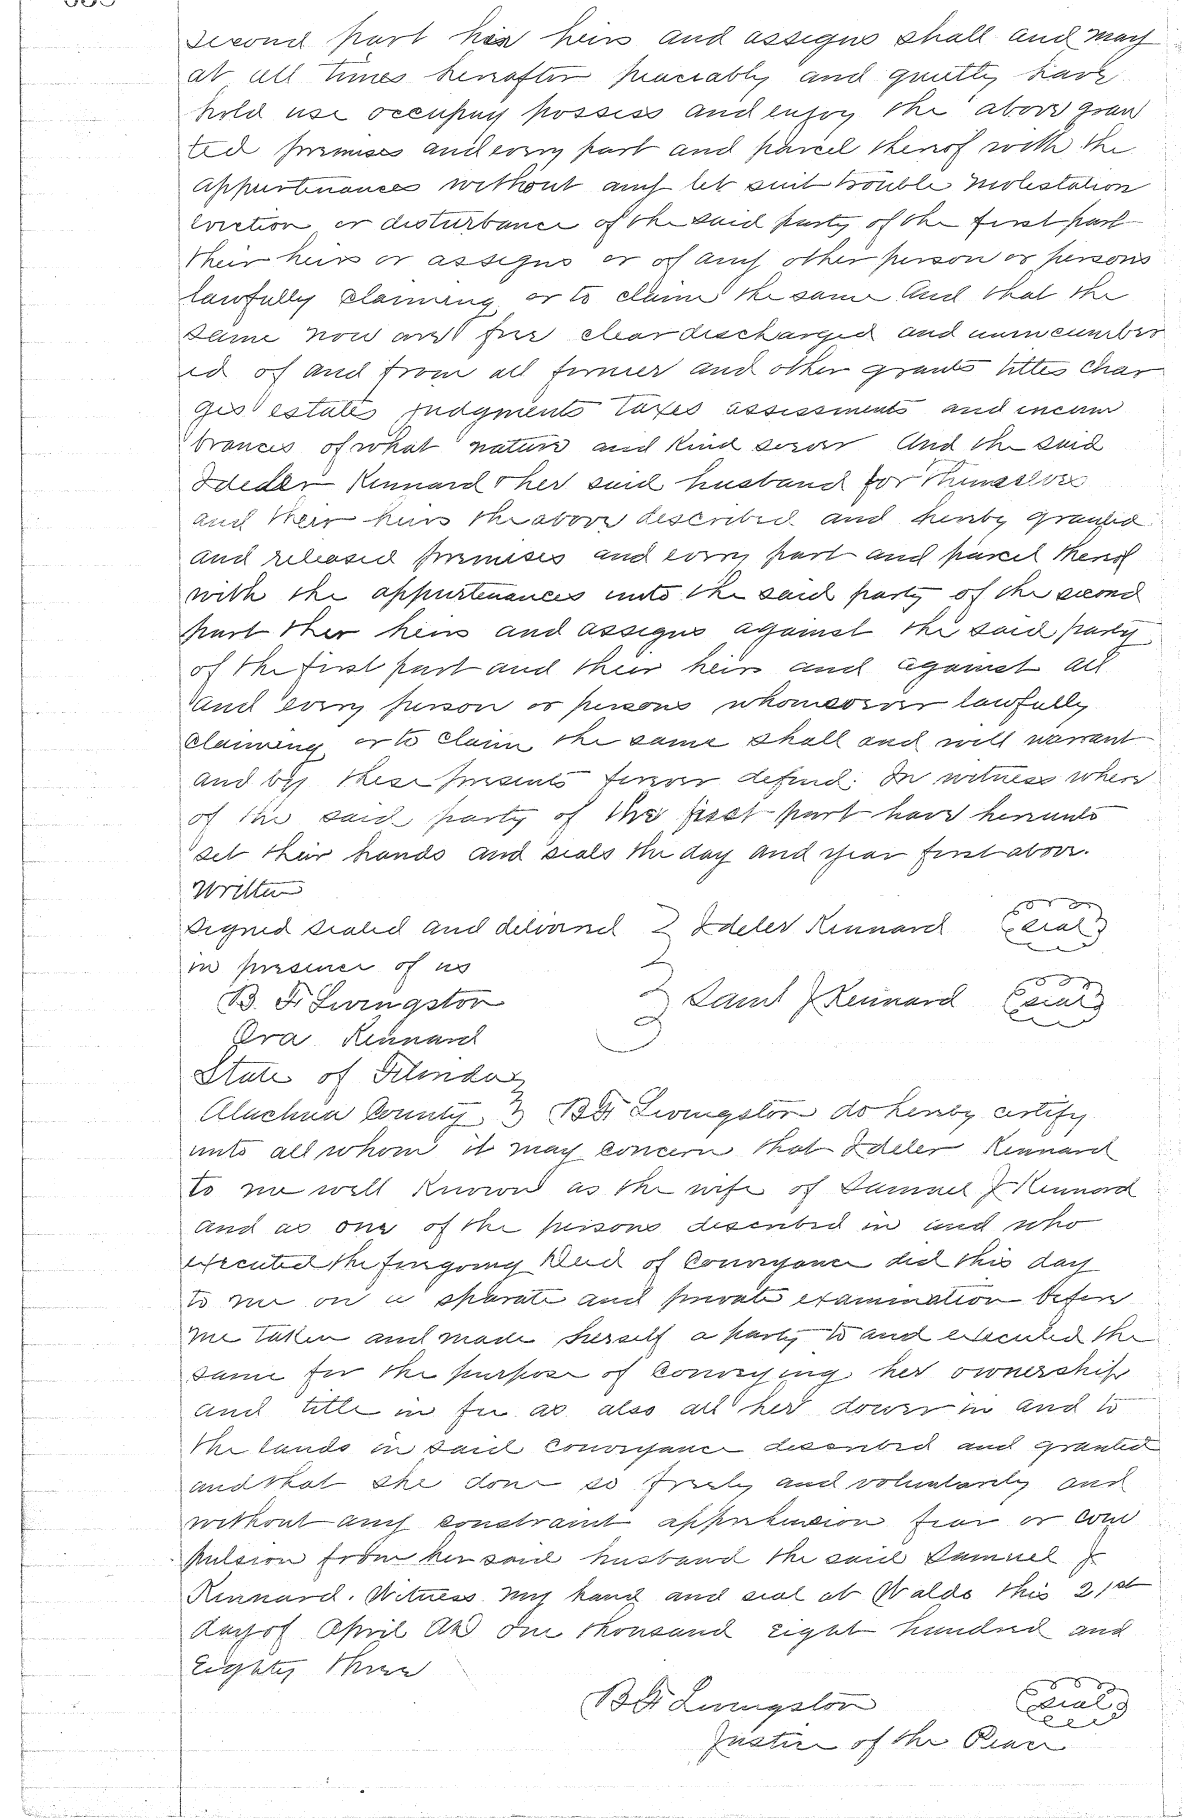 second part his heirs and assigns shall and may
at all times hereafter peaceably and quietly have
hold use occupay possess and enjoy the above gran
ted premises and every part and parcel thereof with the
appurtenances without any let suit trouble molestation
eviction or disturbance of the said party of the first part
their heirs or assigns or of any other person or persons
lawfully claiming or to claim the same And that the
same now are free clear discharged and unincumber
ed of and from all former and other grants titles char
ges estates judgments taxes assessments and incum
brances of what nature and kind soever And the said
Ideler Kennard & her said husband for themselves
and their heirs the above described and hereby granted
and released premises and every part and parcel thereof
with the appurtenances unto the said party of the second
part ther heirs and assigns against the said party
of the first part and their heirs and against all
and every person or persons whomsoever lawfully
claiming or to claim the same shall and will warrant
and by these presents forever defend. In witness where
of the said party of the first part have hereunto
set their hands and seals the day and year first above.
Written
Signed sealed and delivered Ideler Kennard seal
in presence of us
B. F. Livingston Saml J Kennard seal
Ora Kennard
State of Florida
Alachua County B F Livingston do hereby certify
unto all whom it may concern that Ideler Kennard
to me well known as the wife of Samuel J Kennard
and as one of the persons described in and who
executed the foregoing Deed of Conveyance did this day
to me on a sparate and private examination before
me taken and made herself a party to and executed the
same for the purpose of conveying her ownership
and title in fee as also all her dower in and to
the lands in said conveyance described and granted
and that she done so freely and voluntarily and
without any constraint apprehension fear or com
pulsion from her said husband the said Samuel J
Kennard. Witness my hand and seal at Waldo this 21st
day of April AD One thousand eight hundred and
Eighty three
B F Livingston seal
Justice of the Peace